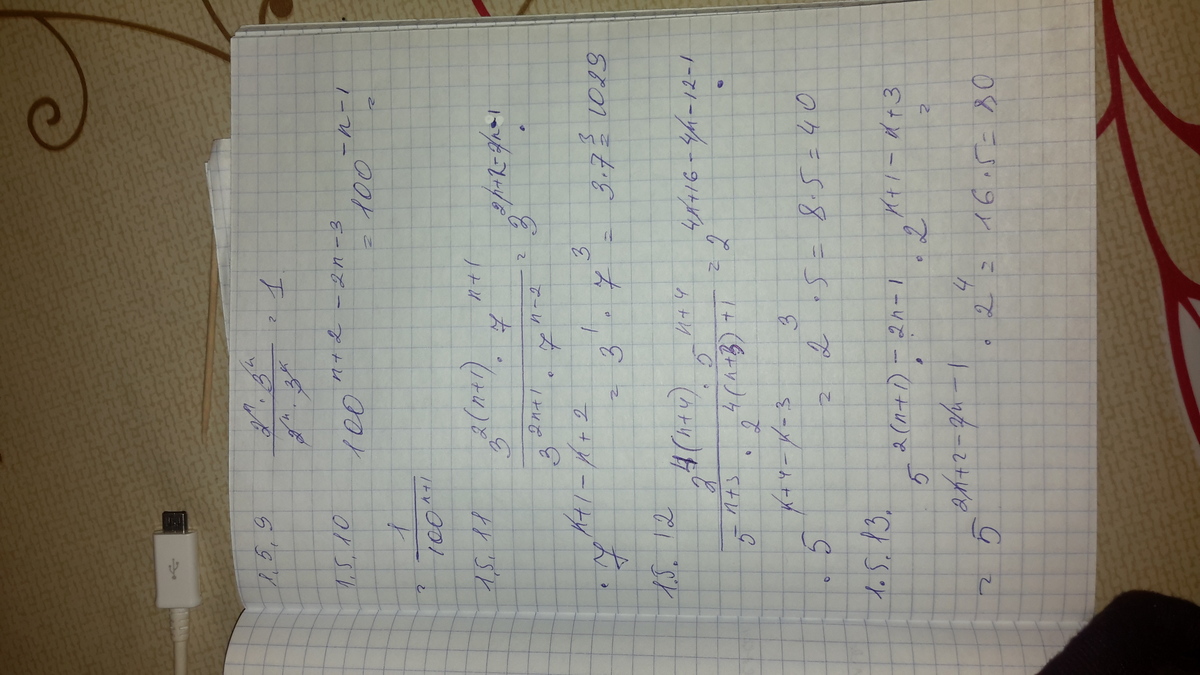 1.5.9 \frac{2^n · 3^n}{2^n · 3^n} = 1
1.5.10 100^{n+2-2n-3} = 100^{-n-1} =
= \frac{1}{100^{n+1}}
1.5.11 \frac{3^{2(n+1)} · 7^{n+1}}{3^{2n+1} · 7^{n-2}} = 3^{2n+2-2n-1} ·
· 7^{n+1-n+2} = 3^1 · 7^3 = 3·7^3 = 1029
1.5.12 \frac{2^{4(n+4)} · 5^{n+4}}{5^{n+3} · 2^{4(n+3)+1}} = 2^{4n+16-4n-12-1} ·
· 5^{n+4-n-3} = 2^3 · 5 = 8·5 = 40
1.5.13. 5^{2(n+1)-2n-1} · 2^{n+1-n+3} =
= 5^{2n+2-2n-1} · 2^4 = 16·5 = 80